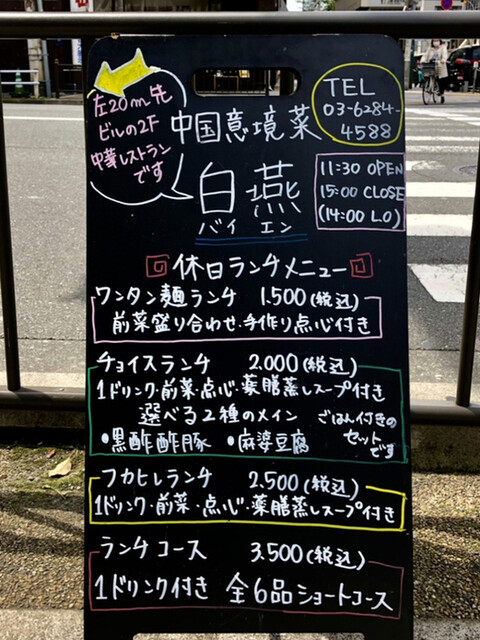 左20m先
ビルの2F
中華レストラン
です
中国意境菜
白燕
バイエン
TEL
03-6284-
4588
11:30 OPEN
15:00 CLOSE
(14:00 LO)
休日ランチメニュー
ワンタン麺ランチ 1.500(税込)
前菜盛り合わせ・手作り点心付き
チョイスランチ 2.000(税込)
1ドリンク・前菜・点心・薬膳蒸しスープ付き
選べる2種のメイン ごはん付きの
セット
です
•黒酢酢豚 •麻婆豆腐
フカヒレランチ 2.500(税込)
1ドリンク・前菜・点心・薬膳蒸しスープ付き
ランチコース 3.500(税込)
1ドリンク付き 全6品ショートコース